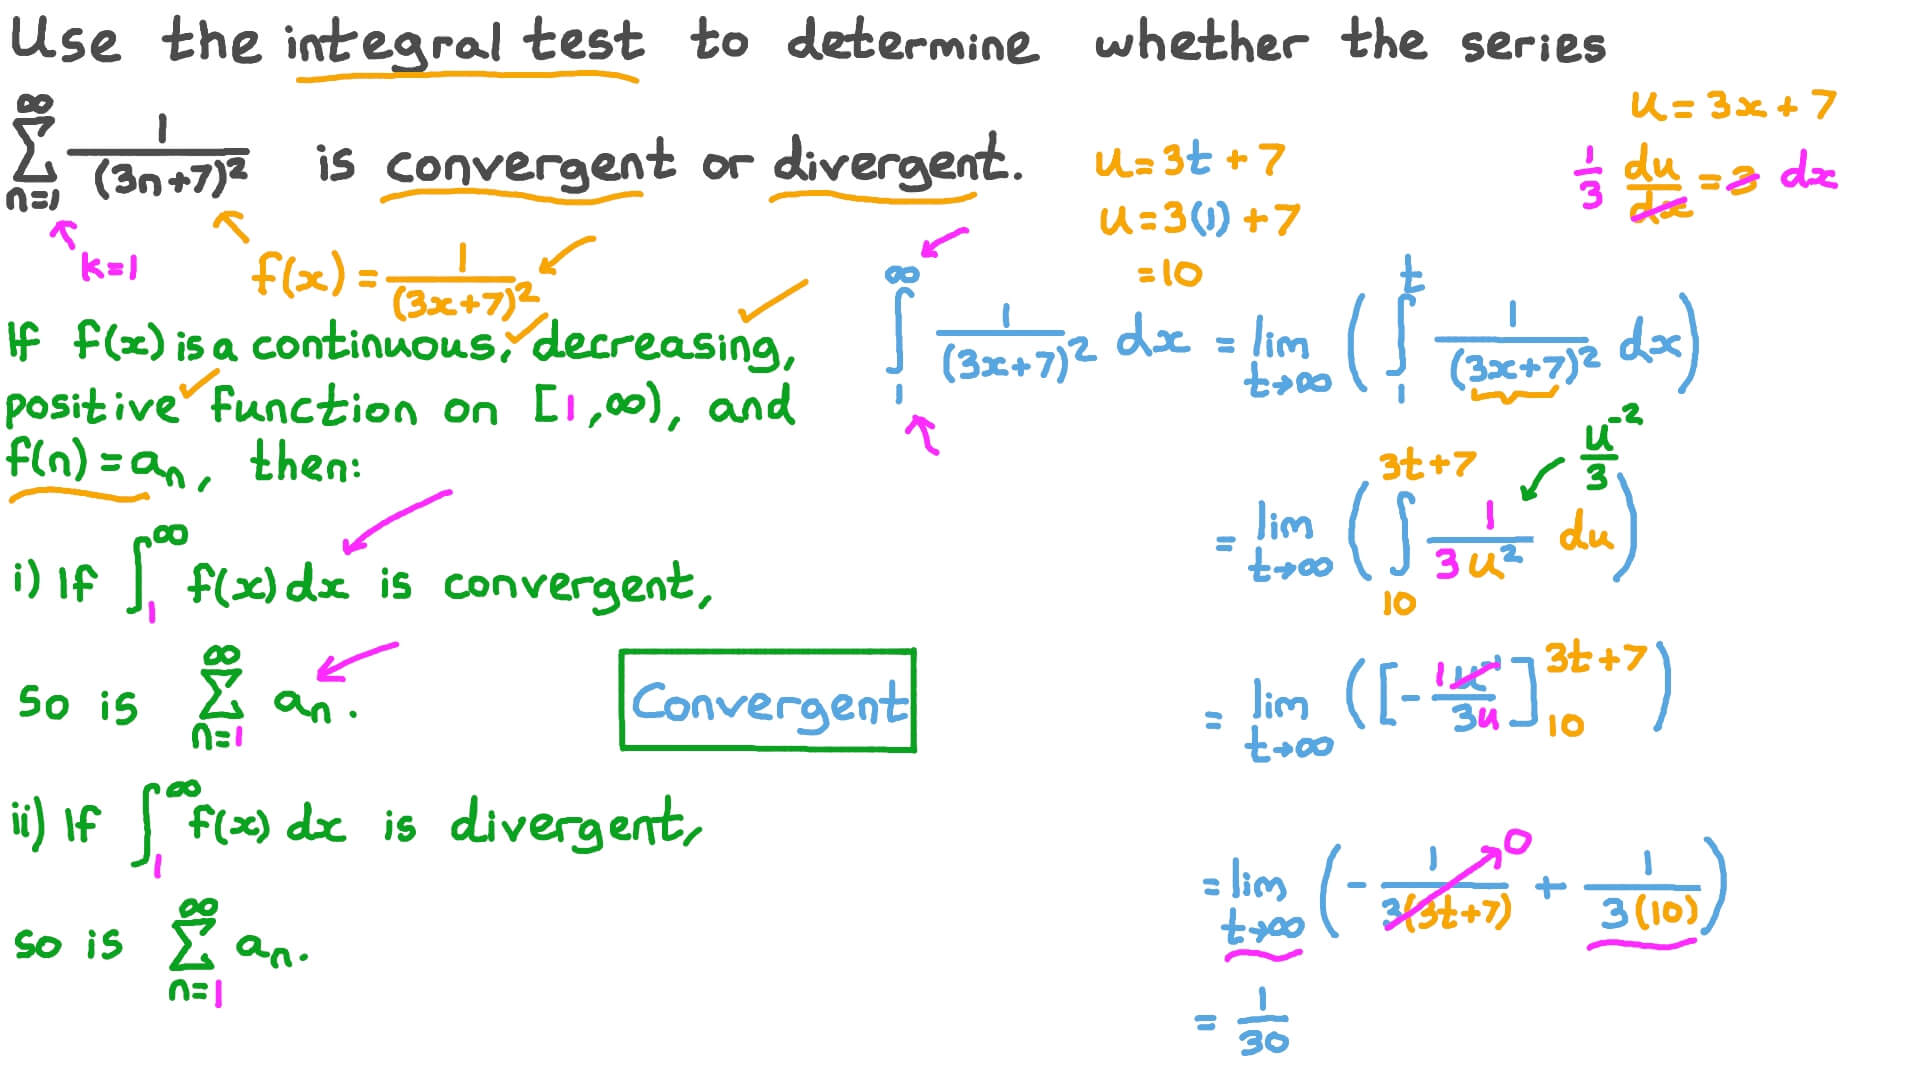 Use the integral test to determine whether the series
∞ Σ n=1 1/(3n+7)² is convergent or divergent.
k=1
f(x) = 1/(3x+7)²
If f(x) is a continuous, decreasing,
positive function on [1,∞), and
f(n) = aₙ, then:
i) If ∫₁^∞ f(x) dx is convergent,
so is ∞ Σ n=1 aₙ.
ii) If ∫₁^∞ f(x) dx is divergent,
so is ∞ Σ n=1 aₙ.
Convergent
u = 3t + 7
u = 3(1) + 7
= 10
u = 3x + 7
1/3 du/dx = 3 dx
∫₁^∞ 1/(3x+7)² dx = lim t→∞ (∫₁^t 1/(3x+7)² dx)
u⁻²/3
= lim t→∞ (∫₁₀^(3t+7) 1/(3u²) du)
= lim t→∞ ([- 1 u⁻¹/3u]₁₀^(3t+7))
= lim t→∞ (- 1/(3(3t+7)) + 1/(3(10)))
0
= 1/30